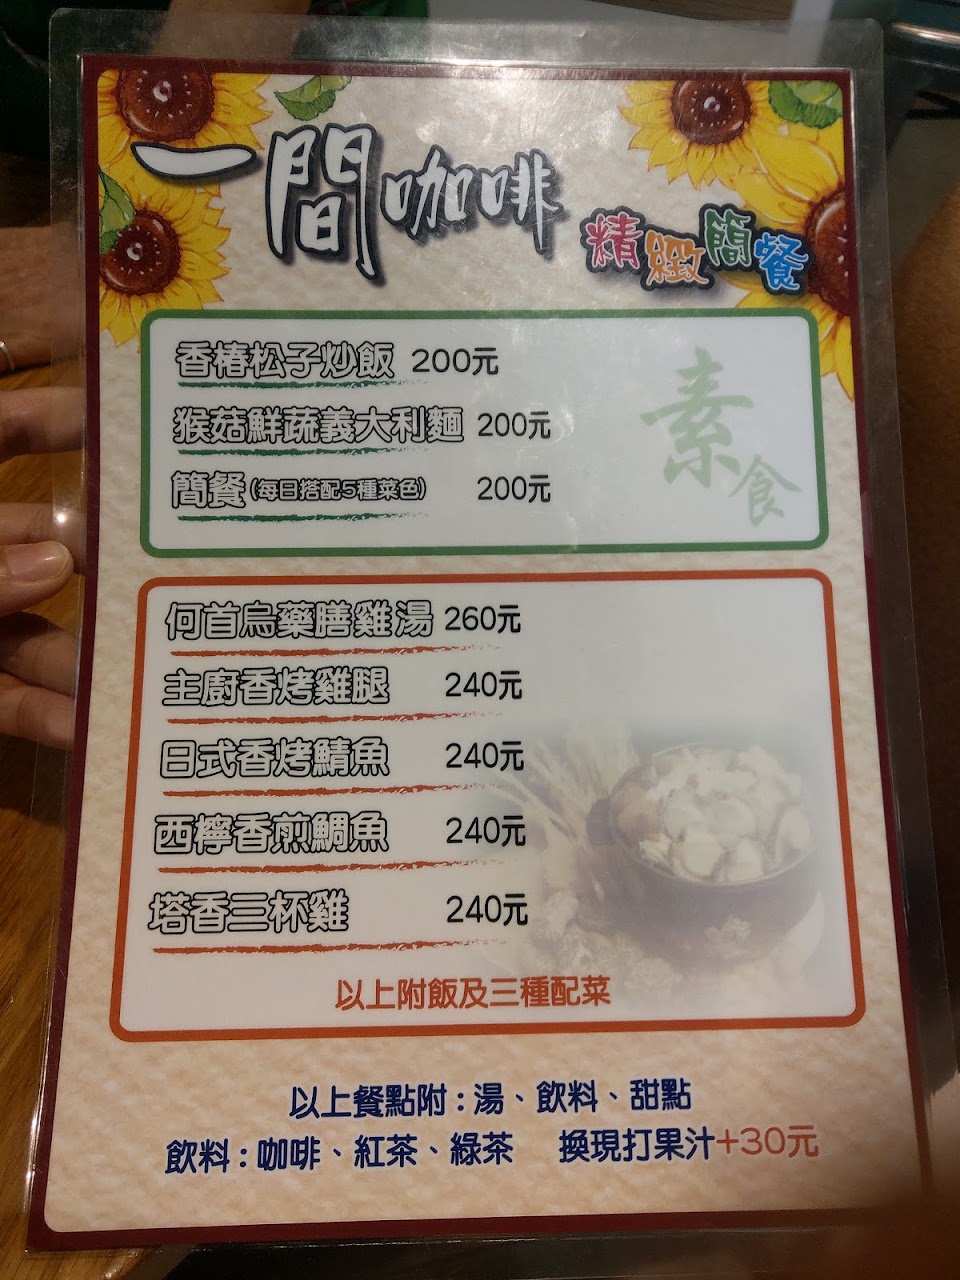 一間咖啡
精緻簡餐
香椿松子炒飯 200元
猴菇鮮蔬義大利麵 200元
簡餐(每日搭配5種菜色) 200元
素食
何首烏藥膳雞湯 260元
主廚香烤雞腿 240元
日式香烤鯖魚 240元
西檸香煎鯛魚 240元
塔香三杯雞 240元
以上附飯及三種配菜
以上餐點附:湯、飲料、甜點
飲料:咖啡、紅茶、綠茶 換現打果汁+30元